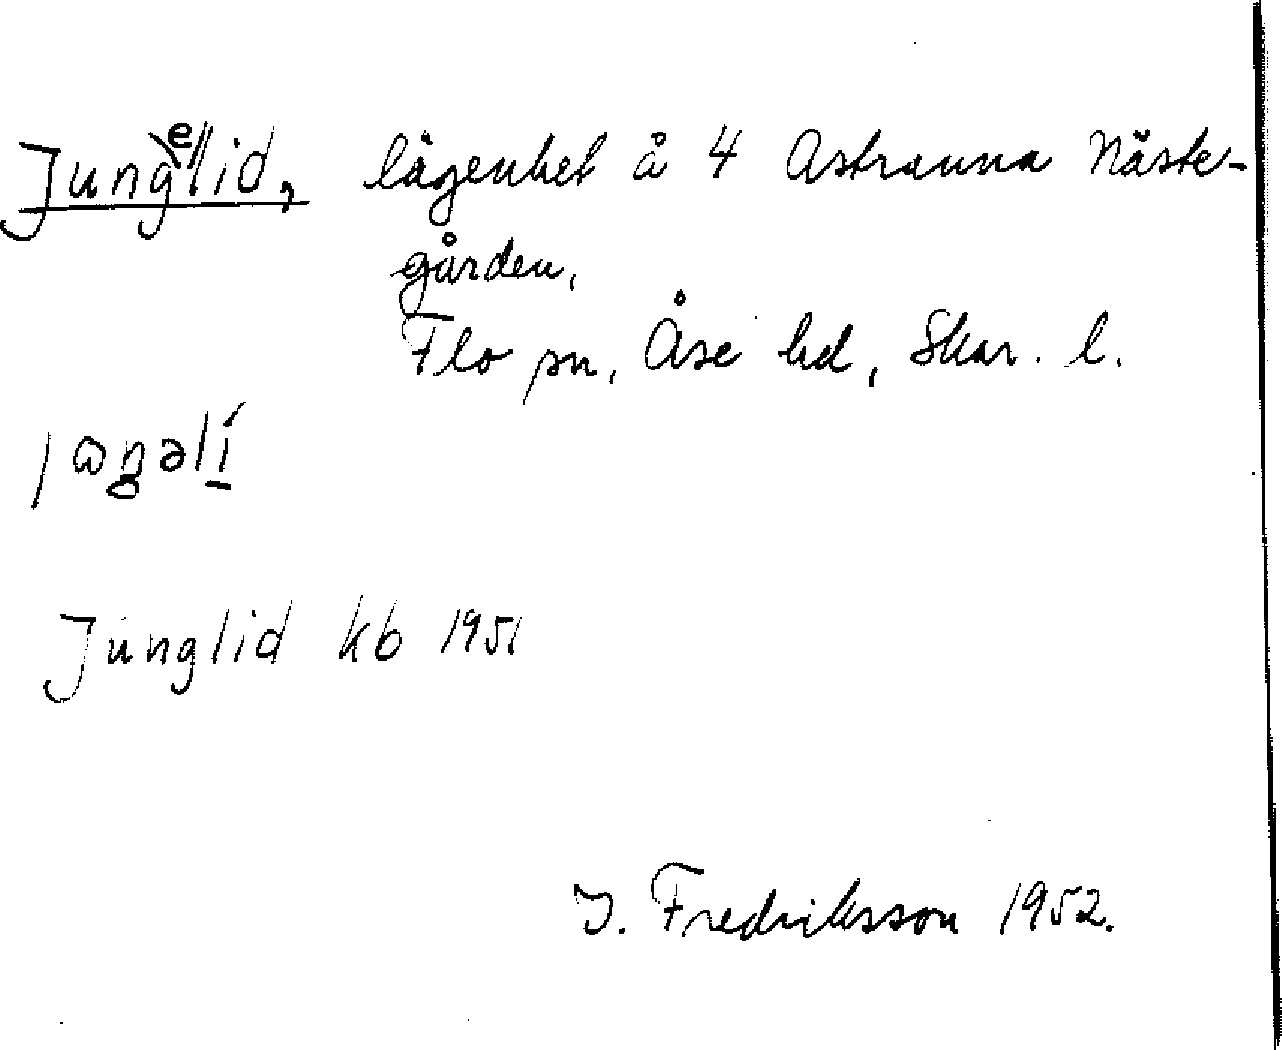 Jungelid, lägenhet å 4 Astranna Näste-
gården,
Flo sn, Åse hd, Skar. l.
Junglid kb 1951
I. Fredriksson 1952.